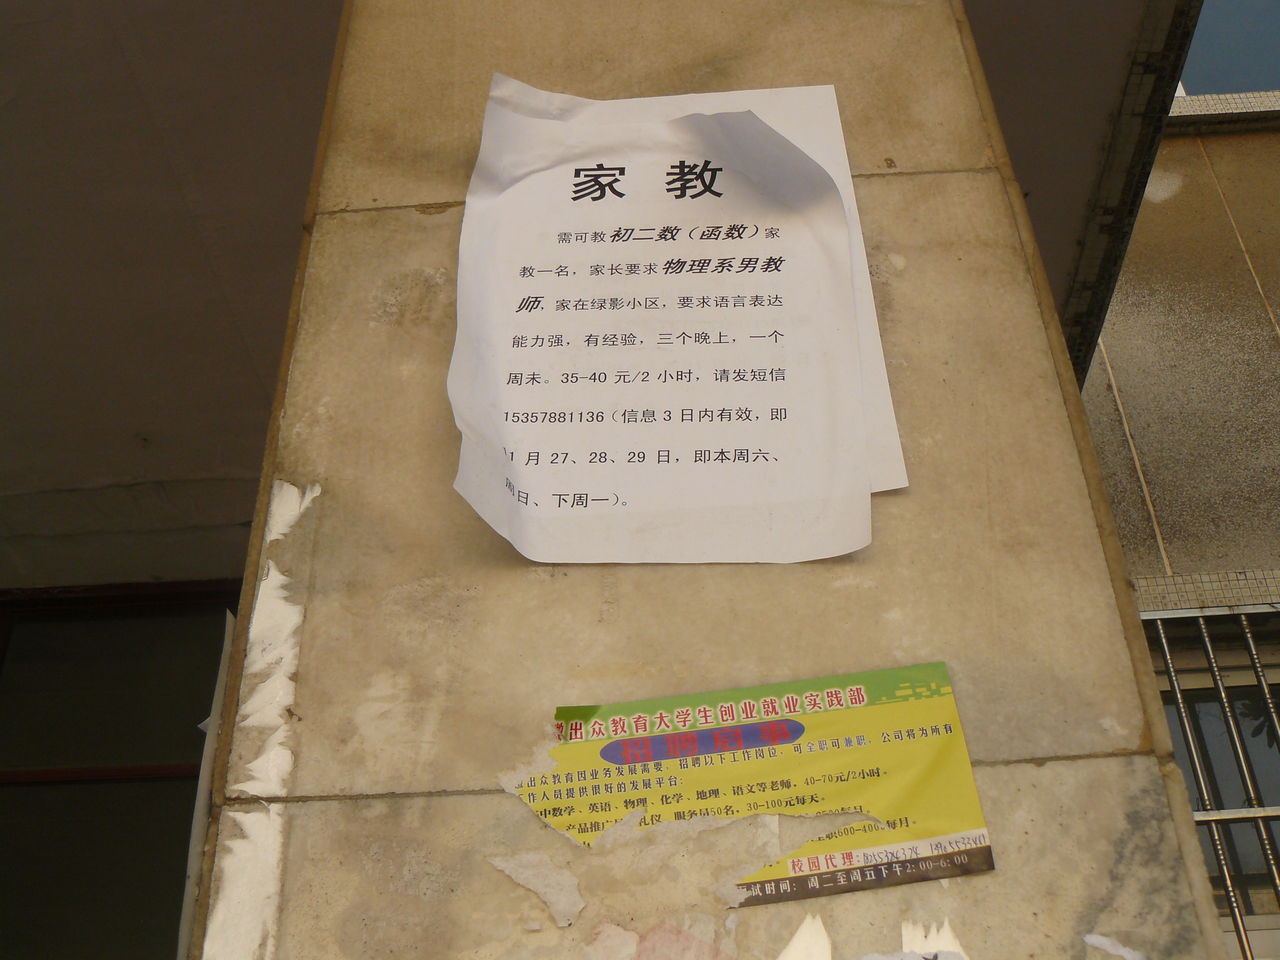 家 教
需可教初二数（函数）家
教一名，家长要求物理系男教
师，家在绿影小区，要求语言表达
能力强，有经验，三个晚上，一个
周未。35-40 元/2 小时，请发短信
15357881136（信息 3 日内有效，即
11 月 27、28、29 日，即本周六、
周日、下周一）。
出众教育大学生创业就业实践部
出众教育因业务发展需要，招聘以下工作岗位，可全职可兼职，公司将为所有
工作人员提供很好的发展平台：
中数学、英语、物理、化学、地理、语文等老师，40-70元/2小时。
产品推广 礼仪、服务员50名，30-100元每天。
每月。
600-400 每月。
校园代理：
试时间：周二至周五下午2：00-6：00